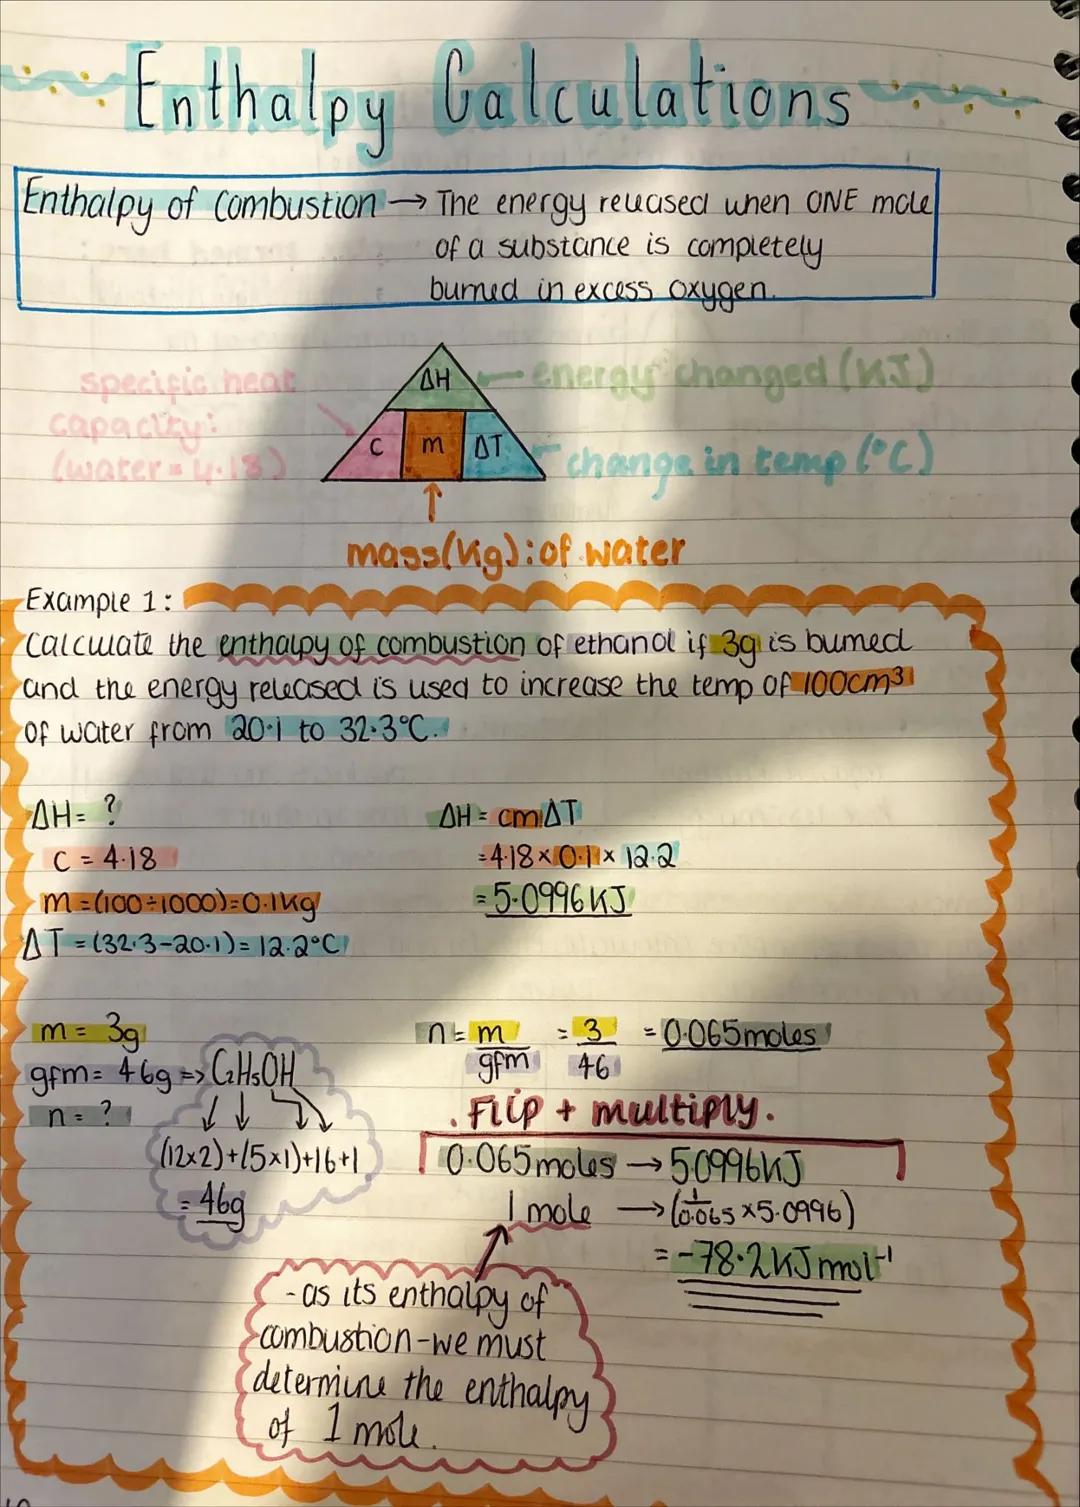 Enthalpy Calculations
Enthalpy of Combustion → The energy released when ONE mole
of a substance is completely
burned in excess oxygen.
specific heat
capacity:
(water = 4.18)
ΔH
← energy changed (KJ)
C m ΔT
change in temp (°C)
mass(Kg): of water
Example 1:
Calculate the enthalpy of combustion of ethanol if 3g is burned
and the energy released is used to increase the temp of 100cm³
of water from 20.1 to 32.3°C.
ΔH = ?
C = 4.18
m = (100÷1000) = 0.1Kg
ΔT = (32.3-20.1) = 12.2°C
ΔH = cmΔT
= 4.18 × 0.1 × 12.2
= 5.0996KJ
m = 3g
gfm = 46g => C₂H₅OH
n = ?
(12×2)+(5×1)+16+1
= 46g
n = m = 3 = 0.065moles
gfm 46
. Flip + multiply .
0.065moles → 5.0996KJ
1 mole → (1/0.065 × 5.0996)
= -78.2KJmol⁻¹
- as its enthalpy of
combustion - we must
determine the enthalpy
of 1 mole.